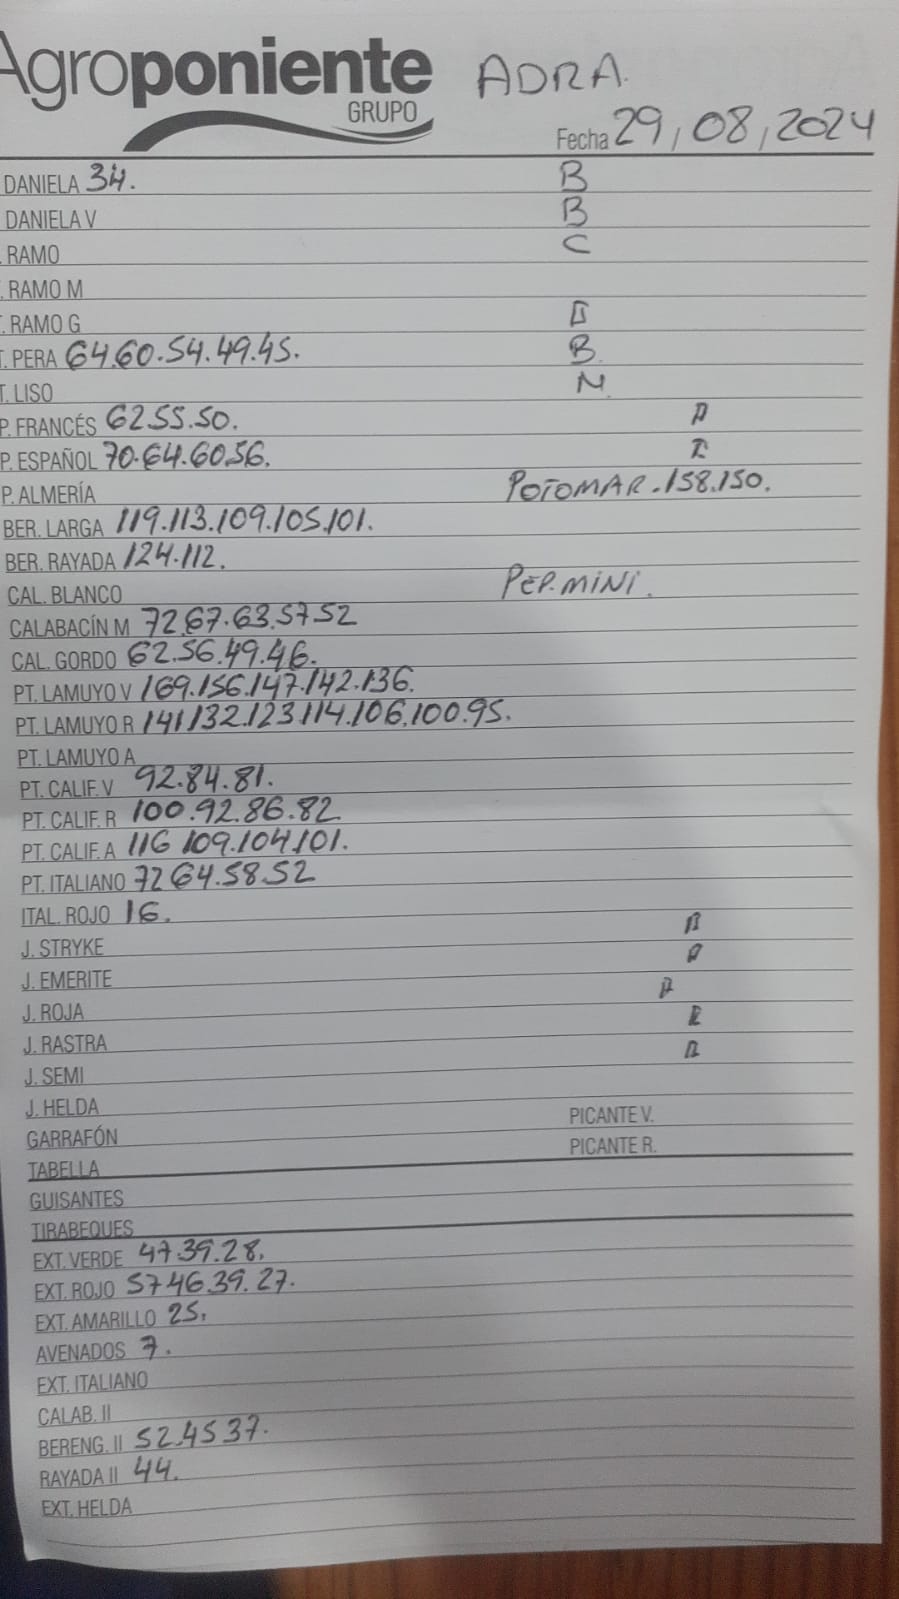 Agroponiente ADRA.
GRUPO
Fecha 29, 08, 2024
DANIELA 34. B
DANIELA V B
. RAMO C
. RAMO M
T. RAMO G
T. PERA 64.60.54.49.45. B.
T. LISO N.
P. FRANCÉS 62 55.50.
P. ESPAÑOL 70.64.60.56.
P. ALMERÍA POTOMAR.158.150.
BER. LARGA 119.113.109.105.101.
BER. RAYADA 124.112.
CAL. BLANCO PEP.MINI.
CALABACÍN M 72.67.63.57.52
CAL. GORDO 62.56.49.46.
PT. LAMUYO V 169.156.147.142.136.
PT. LAMUYO R 141.132.123.114.106.100.95.
PT. LAMUYO A
PT. CALIF. V 92.84.81.
PT. CALIF. R 100.92.86.82
PT. CALIF. A 116 109.104.101.
PT. ITALIANO 72 64.58.52
ITAL. ROJO 16.
J. STRYKE
J. EMERITE
J. ROJA
J. RASTRA
J. SEMI
J. HELDA
GARRAFÓN PICANTE V.
TABELLA PICANTE R.
GUISANTES
TIRABEQUES
EXT. VERDE 47.39.28.
EXT. ROJO 57 46.39.27.
EXT. AMARILLO 25.
AVENADOS 7.
EXT. ITALIANO
CALAB. II
BERENG. II 52.45 37.
RAYADA II 44.
EXT. HELDA